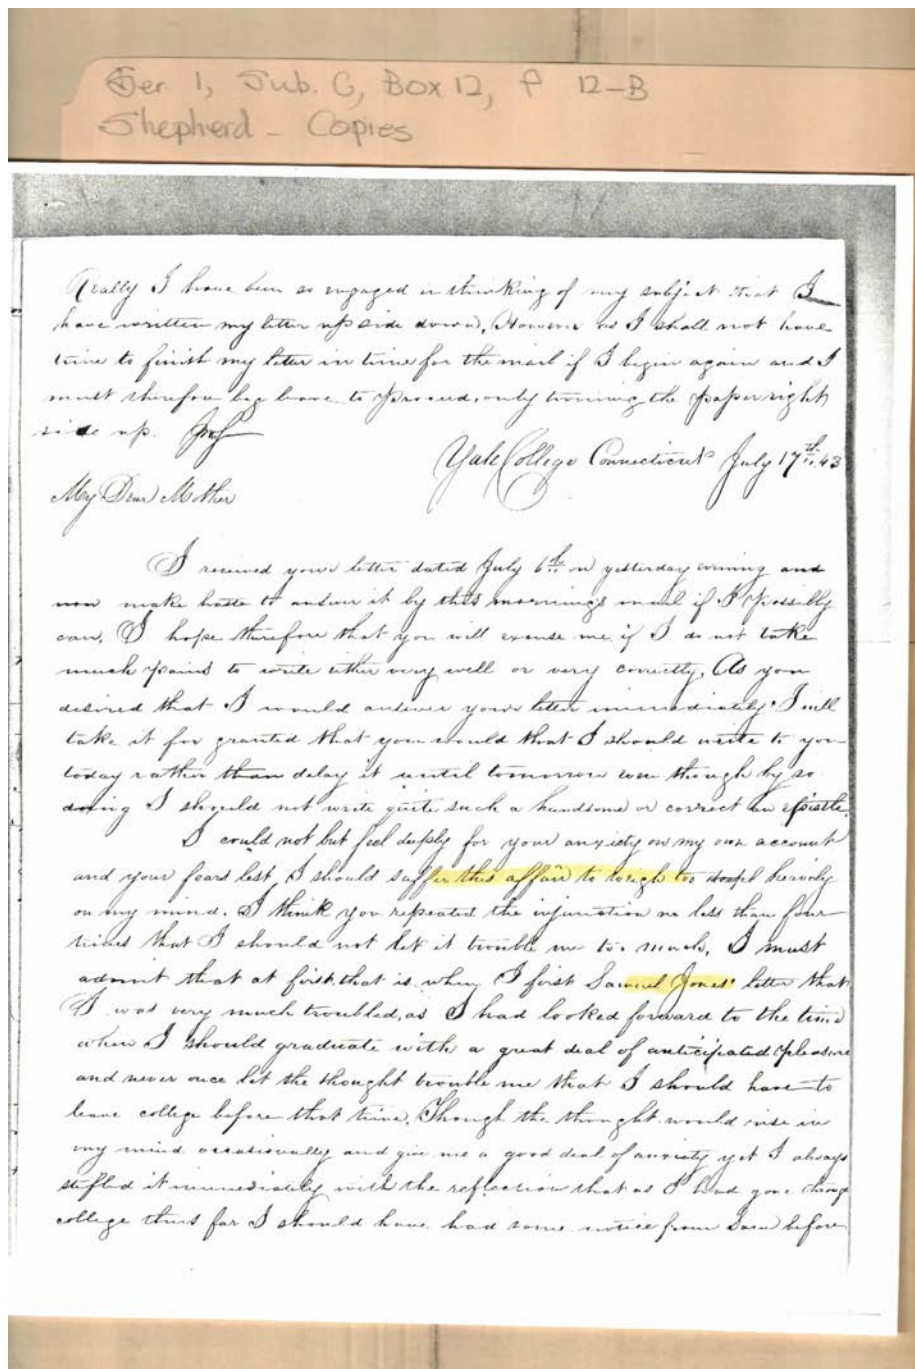 Ser. 1, Sub. G, Box 12, f 12-B
Shepherd - Copies
Really I have been so engaged in thinking of my subject that I
have written my letter up side down. However as I shall not have
time to finish my letter in time for the mail if I begin again and I
must therefore beg leave to proceed, only turning the paper right
side up.
Yale College Connecticut July 17th. 43
My Dear Mother
I received your letter dated July 6th on yesterday evening and
now make haste to answer it by this mornings mail if I possibly
can. I hope therefore that you will excuse me if I do not take
much pains to write either very well or very correctly. As you
desired that I would answer your letter immediately I will
take it for granted that you would that I should write to you
today rather than delay it until tomorrow even though by so
doing I should not write quite such a handsome or correct an epistle.
I could not but feel deeply for your anxiety on my own account
and your fears lest I should suffer this affair to weigh too heavily
on my mind. I think you repeated the injunction no less than four
times that I should not let it trouble me too much. I must
admit that at first, that is when I first Samuel Jones' letter that
I was very much troubled, as I had looked forward to the time
when I should graduate with a great deal of anticipated pleasure
and never once let the thought trouble me that I should have to
leave college before that time. Though the thought would rise in
my mind occasionally and give me a good deal of anxiety yet I always
stifled it immediately with the reflection that as I had gone through
college thus far I should have had some notice from before